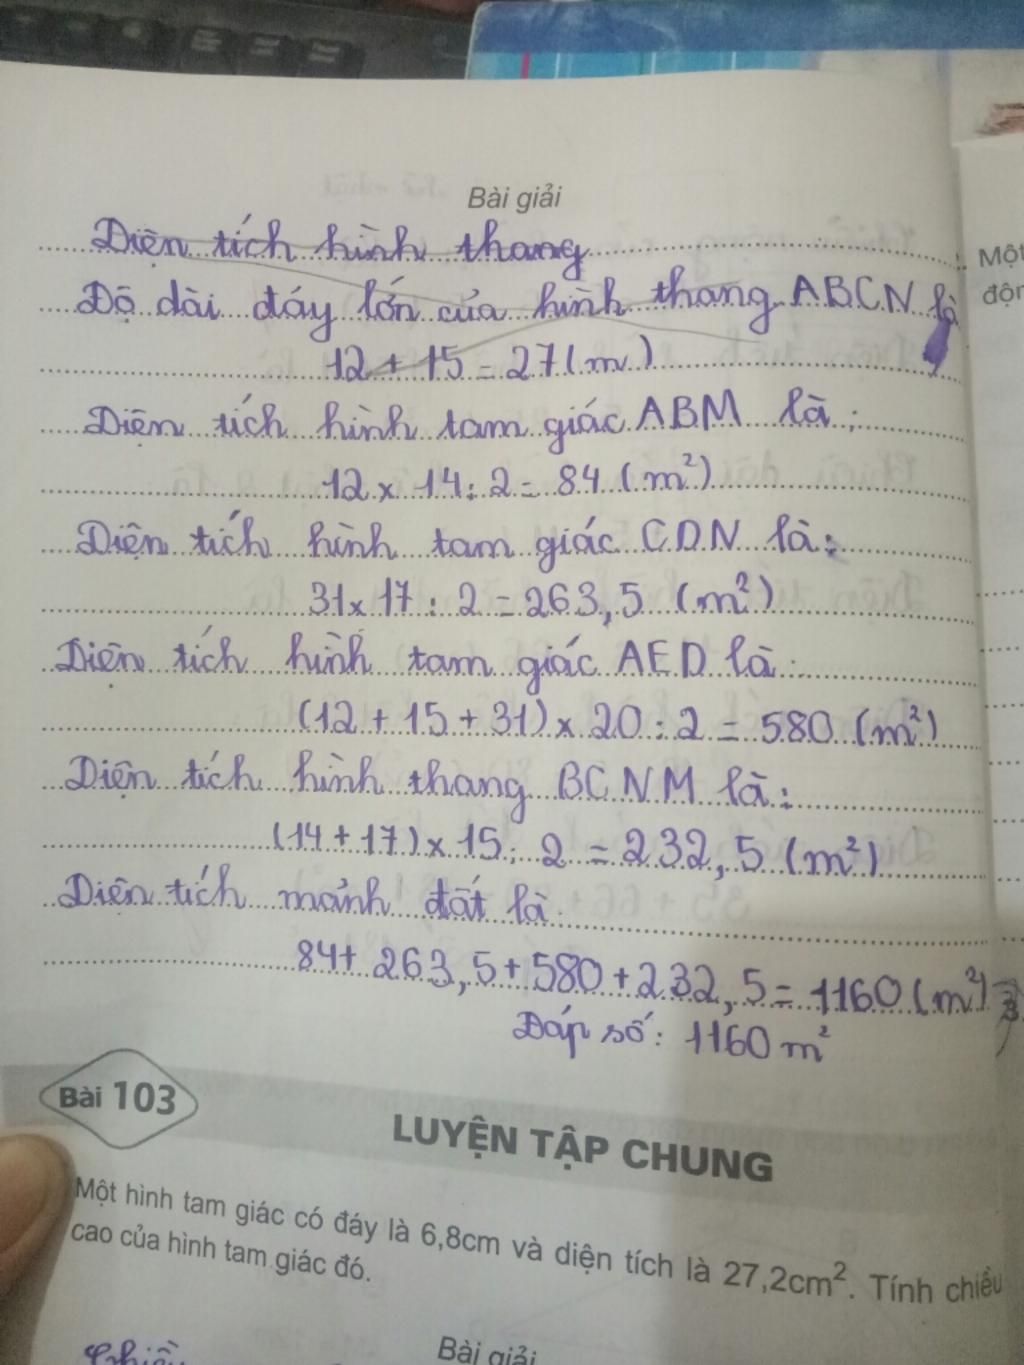 Bài giải
Diện tích hình thang
Một
Độ dài đáy lớn của hình thang ABCN là
độn
12 + 15 = 27 (m)
Diện tích hình tam giác ABM là :
12 x 14 : 2 = 84 (m²)
Diện tích hình tam giác CDN là :
31 x 17 : 2 = 263,5 (m²)
Diện tích hình tam giác AED là :
(12 + 15 + 31) x 20 : 2 = 580 (m²)
Diện tích hình thang BCNM là :
(14 + 17) x 15 : 2 = 232,5 (m²)
Diện tích mảnh đất là
84 + 263,5 + 580 + 232,5 = 1160 (m²)
Đáp số : 1160 m²
Bài 103
LUYỆN TẬP CHUNG
Một hình tam giác có đáy là 6,8cm và diện tích là 27,2cm². Tính chiều
cao của hình tam giác đó.
Bài giải
Chiều